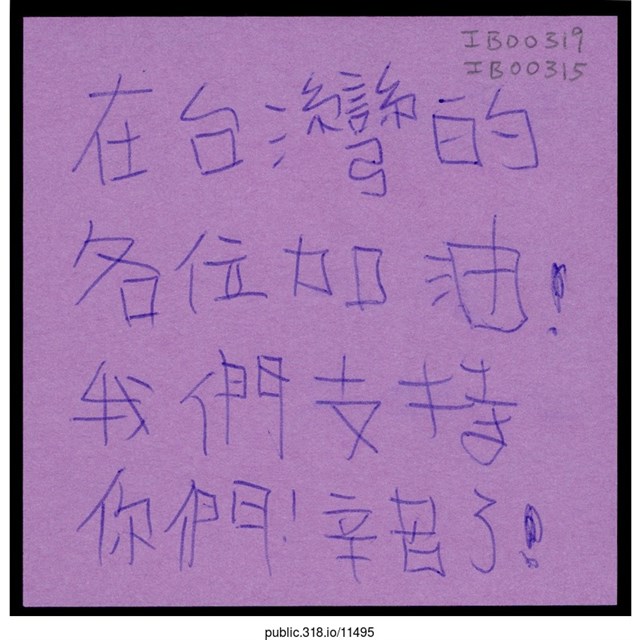 IB00319
IB00315
在台灣的
各位加油!
我們支持
你們!辛苦了!
public.318.io/11495